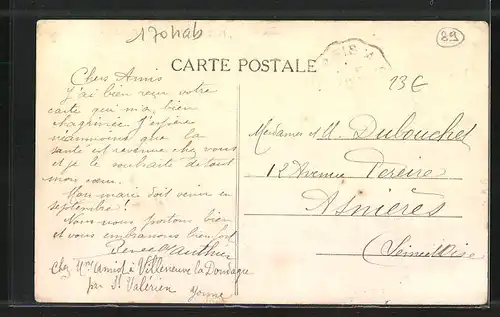 170hab
89
CARTE POSTALE
23€
Chers Amis
J'ai bien reçu votre
carte qui m'a bien
chagrinée j'espère
néanmoins que la
santé est revenue chez vous
et je le souhaite de tout
mon cœur.
Mon mari doit venir en
septembre!
Nous nous portons bien
et vous embrassons bien fort
Chez Mme Camus à Villeneuve la Dondagre
par St Valérien Yonne
Mesdames et M. Dubouchet
12 Avenue Pereire
Asnières
(Seine et Oise)